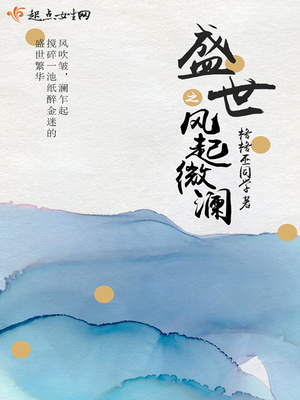 起点女生网
盛世
之
风起微澜
格格丕同学 著
风吹皱，澜乍起
搅碎一池纸醉金迷的
盛世繁华